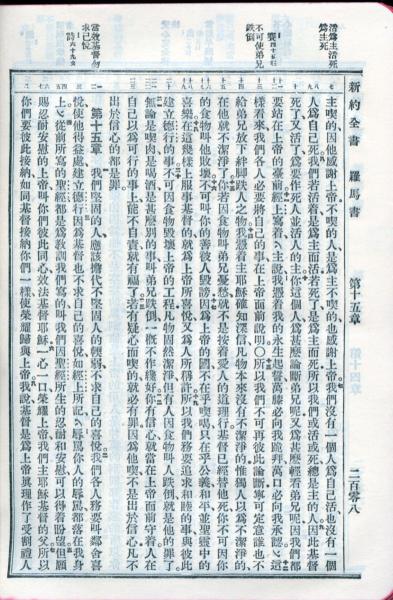 新約全書 羅馬書 第十五章 二百零八
活爲主活死
爲主死
不可使弟兄
跌倒
當效基督勿
求己悅
主喫的因他感謝上帝不喫的人是爲主不喫的也感謝上帝我們沒有一個人爲自己活也沒有一個
人爲自己死我們若活着是爲主而活若死了是爲主而死所以我們或活或死總是主的人因此基督
死了又活了爲要作死人並活人的主你這個人爲甚麽論斷弟兄呢又爲甚麽輕看弟兄呢因我們都
要站在上帝的臺前經上寫着主說我憑着我的永生起誓萬膝必向我跪拜萬口必向我承認這
樣看來我們各人必要將自己的事在上帝面前說明〇所以我們不可再彼此論斷寧可定意誰也不
給弟兄放下絆脚跌人之物我憑着主耶穌確知深信凡物本來沒有不潔淨的惟獨人以爲不潔淨的
在他就不潔淨了你若因食物叫弟兄憂愁就不是按着愛人的道理行基督已經替他死你不可因你
的食物叫他敗壞不可叫你的善被人毀謗因爲上帝的國不在乎喫喝只在乎公義和平並聖靈中的
喜樂在這幾樣上服事基督的就爲上帝所喜悅又爲人所稱許所以我們務要追求和睦的事與彼此
建立德行的事不可因食物毀壞上帝的工程凡物固然潔淨但有人因食物叫人跌倒就是他的罪了
無論是喫肉是喝酒是甚麽別的事叫弟兄跌倒一槪不作纔好你有信心就當在上帝面前守着人在
自己以爲可行的事上能不自責就有福了若有疑心而喫的就必有罪因爲他喫不是出於信心凡不
出於信心的都是罪
第十五章 我們堅固的人應該擔代不堅固人的輭弱不求自己的喜悅我們各人務要叫鄰舍喜
悅使他得益處建立德行因爲基督也不求自己的喜悅如經上所記辱罵你人的辱罵都落在我身
上從前所寫的聖經都是爲敎訓我們寫的叫我們因聖經所生的忍耐和安慰可以得着盼望但願
賜忍耐安慰的上帝叫你們彼此同心效法基督耶穌一心一口榮耀上帝我們主耶穌基督的父所以
你們要彼此接納如同基督接納你們一樣使榮耀歸與上帝我說基督是爲上帝眞理作了受割禮人